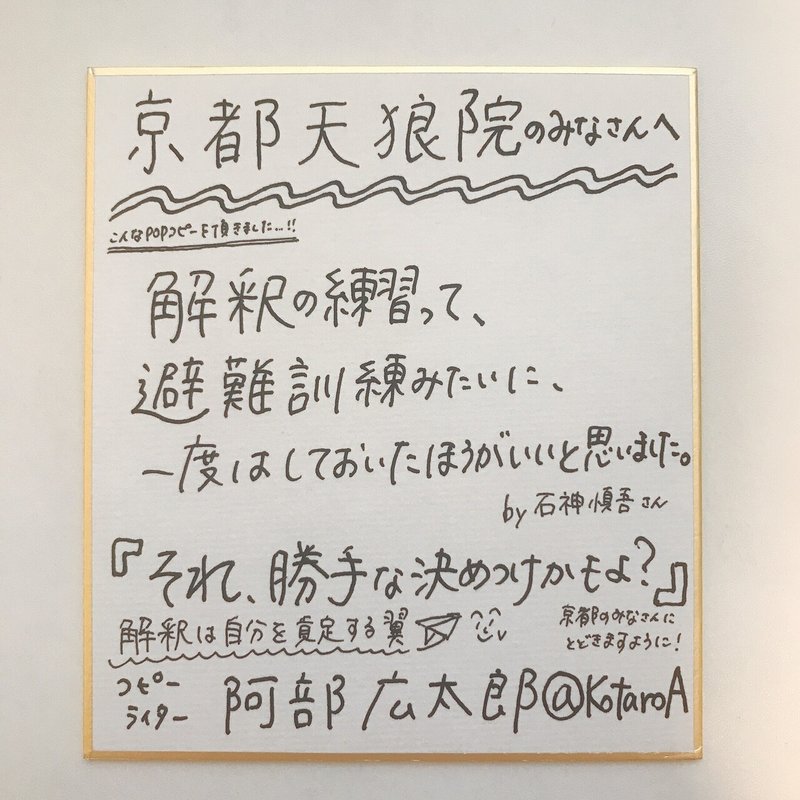 京都天狼院のみなさんへ
こんなPOPコピーを頂きました…!!
解釈の練習って、
避難訓練みたいに、
一度はしておいたほうがいいと思いました。
by 石神慎吾さん
『それ、勝手な決めつけかもよ?』
解釈は自分を肯定する翼
京都のみなさんに
とどきますように!
コピー
ライター
阿部広太郎@KotaroA